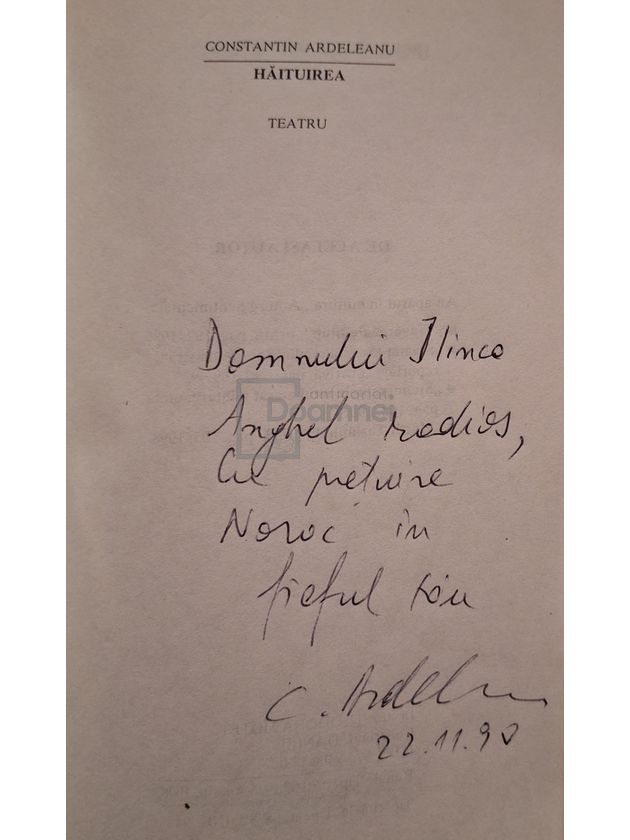 CONSTANTIN ARDELEANU
HĂITUIREA
TEATRU
Domnului Ilinca
anticariat
Doamnei
Anghel radios,
Cu prețuire
Noroc în
fieful tău
C. Ardel
22.11.90